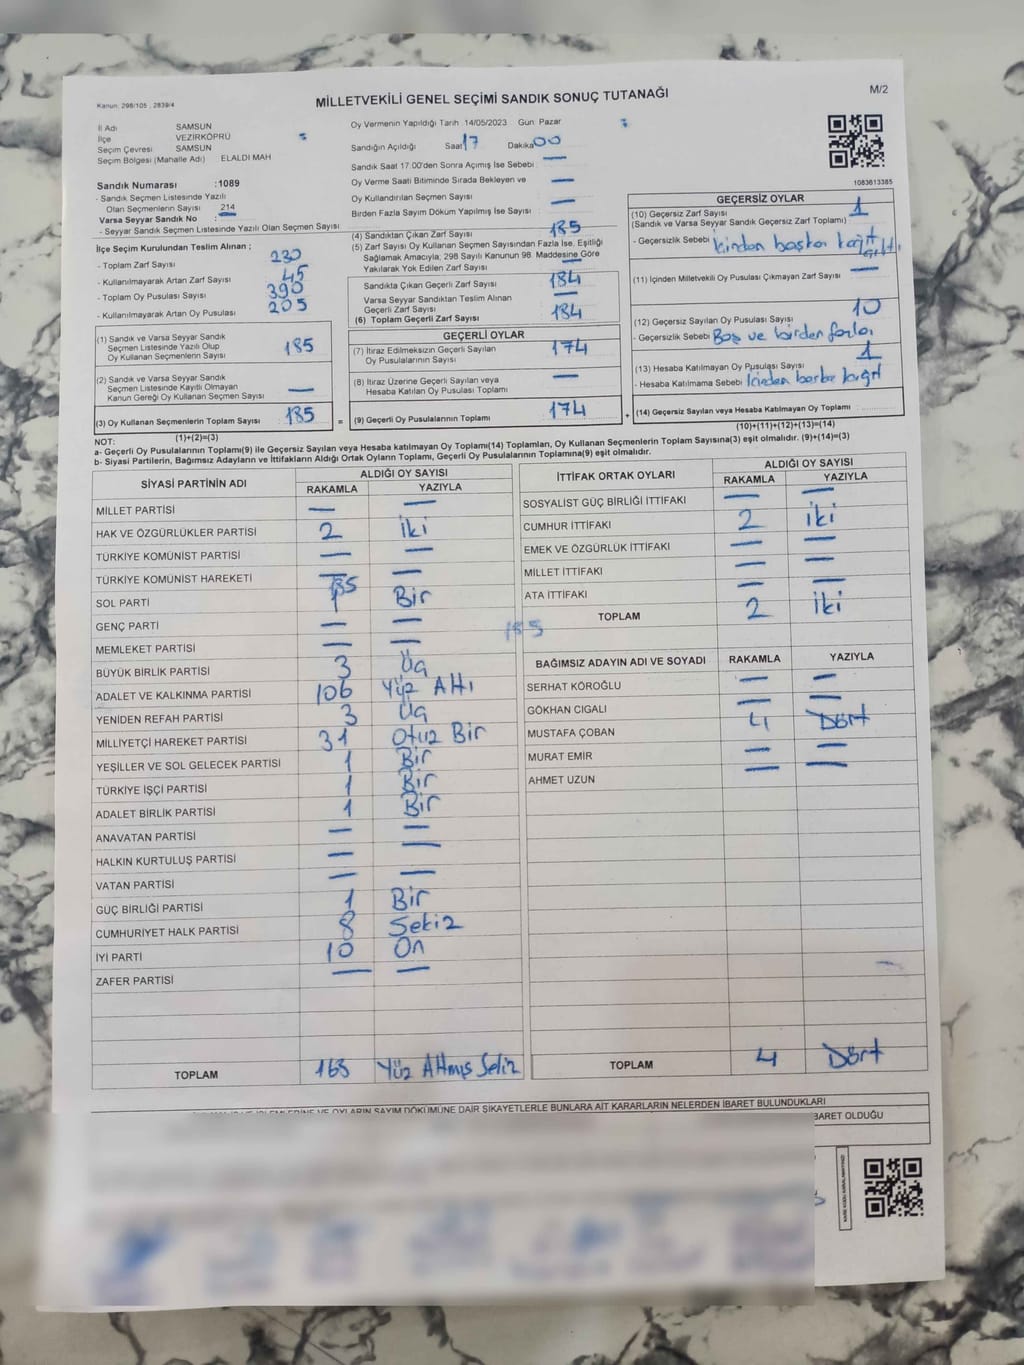 Kanun: 298/105 , 2839/4
MİLLETVEKİLİ GENEL SEÇİMİ SANDIK SONUÇ TUTANAĞI
M/2
İl Adı SAMSUN
İlçe VEZİRKÖPRÜ
Seçim Çevresi SAMSUN
Seçim Bölgesi (Mahalle Adı) ELALDI MAH
Sandık Numarası :1089
- Sandık Seçmen Listesinde Yazılı
Olan Seçmenlerin Sayısı 214
Varsa Seyyar Sandık No :
- Seyyar Sandık Seçmen Listesinde Yazılı Olan Seçmen Sayısı
İlçe Seçim Kurulundan Teslim Alınan ;
- Toplam Zarf Sayısı 230
- Kullanılmayarak Artan Zarf Sayısı 45
- Toplam Oy Pusulası Sayısı 390
- Kullanılmayarak Artan Oy Pusulası 205
(1) Sandık ve Varsa Seyyar Sandık
Seçmen Listesinde Yazılı Olup
Oy Kullanan Seçmenlerin Sayısı 185
(2) Sandık ve Varsa Seyyar Sandık
Seçmen Listesinde Kayıtlı Olmayan
Kanun Gereği Oy Kullanan Seçmen Sayısı —
(3) Oy Kullanan Seçmenlerin Toplam Sayısı 185 =
(1)+(2)=(3)
Oy Vermenin Yapıldığı Tarih :14/05/2023 Gün: Pazar
Sandığın Açıldığı Saat 17 Dakika 00
Sandık Saat 17:00'den Sonra Açımış İse Sebebi —
Oy Verme Saati Bitiminde Sırada Bekleyen ve
Oy Kullandırılan Seçmen Sayısı —
Birden Fazla Sayım Döküm Yapılmış İse Sayısı —
(4) Sandıktan Çıkan Zarf Sayısı 185
(5) Zarf Sayısı Oy Kullanan Seçmen Sayısından Fazla İse, Eşitliği
Sağlamak Amacıyla; 298 Sayılı Kanunun 98. Maddesine Göre
Yakılarak Yok Edilen Zarf Sayısı —
Sandıkta Çıkan Geçerli Zarf Sayısı 184
Varsa Seyyar Sandıktan Teslim Alınan
Geçerli Zarf Sayısı —
(6) Toplam Geçerli Zarf Sayısı 184
GEÇERLİ OYLAR
(7) İtiraz Edilmeksizin Geçerli Sayılan
Oy Pusulalarının Sayısı 174
(8) İtiraz Üzerine Geçerli Sayılan veya
Hesaba Katılan Oy Pusulaları Toplamı —
(9) Geçerli Oy Pusulalarının Toplamı 174 +
1083613385
GEÇERSİZ OYLAR
(10) Geçersiz Zarf Sayısı 1
(Sandık ve Varsa Seyyar Sandık Geçersiz Zarf Toplamı)
- Geçersizlik Sebebi içinden başka kağıt
(11) İçinden Milletvekili Oy Pusulası Çıkmayan Zarf Sayısı —
(12) Geçersiz Sayılan Oy Pusulası Sayısı 10
- Geçersizlik Sebebi Boş ve birden fazla
(13) Hesaba Katılmayan Oy Pusulası Sayısı 1
- Hesaba Katılmama Sebebi içinden başka kağıt
(14) Geçersiz Sayılan veya Hesaba Katılmayan Oy Toplamı
(10)+(11)+(12)+(13)=(14)
NOT:
a- Geçerli Oy Pusulalarının Toplamı(9) ile Geçersiz Sayılan veya Hesaba katılmayan Oy Toplamı(14) Toplamları, Oy Kullanan Seçmenlerin Toplam Sayısına(3) eşit olmalıdır. (9)+(14)=(3)
b- Siyasi Partilerin, Bağımsız Adayların ve İttifakların Aldığı Ortak Oyların Toplamı, Geçerli Oy Pusulalarının Toplamına(9) eşit olmalıdır.
SİYASİ PARTİNİN ADI ALDIĞI OY SAYISI
RAKAMLA YAZIYLA
MİLLET PARTİSİ — —
HAK VE ÖZGÜRLÜKLER PARTİSİ 2 İki
TÜRKİYE KOMÜNİST PARTİSİ — —
TÜRKİYE KOMÜNİST HAREKETİ — —
185
SOL PARTİ 1 Bir
GENÇ PARTİ — —
MEMLEKET PARTİSİ — —
BÜYÜK BİRLİK PARTİSİ 3 Üç
ADALET VE KALKINMA PARTİSİ 106 Yüz Altı
YENİDEN REFAH PARTİSİ 3 Üç
MİLLİYETÇİ HAREKET PARTİSİ 31 Otuz Bir
YEŞİLLER VE SOL GELECEK PARTİSİ 1 Bir
TÜRKİYE İŞÇİ PARTİSİ 1 Bir
ADALET BİRLİK PARTİSİ 1 Bir
ANAVATAN PARTİSİ — —
HALKIN KURTULUŞ PARTİSİ — —
VATAN PARTİSİ — —
GÜÇ BİRLİĞİ PARTİSİ 1 Bir
CUMHURİYET HALK PARTİSİ 8 Sekiz
İYİ PARTİ 10 On
ZAFER PARTİSİ — —
TOPLAM 168 Yüz Altmış Sekiz
İTTİFAK ORTAK OYLARI ALDIĞI OY SAYISI
RAKAMLA YAZIYLA
SOSYALİST GÜÇ BİRLİĞİ İTTİFAKI — —
CUMHUR İTTİFAKI 2 İki
EMEK VE ÖZGÜRLÜK İTTİFAKI — —
MİLLET İTTİFAKI — —
ATA İTTİFAKI — —
TOPLAM 2 İki
185
BAĞIMSIZ ADAYIN ADI VE SOYADI RAKAMLA YAZIYLA
SERHAT KÖROĞLU — —
GÖKHAN CIGALI — —
MUSTAFA ÇOBAN 4 Dört
MURAT EMİR — —
AHMET UZUN — —
TOPLAM 4 Dört
VE OYLARIN SAYIM DÖKÜMÜNE DAİR ŞİKAYETLERLE BUNLARA AİT KARARLARIN NELERDEN İBARET BULUNDUKLARI
BARET OLDUĞU